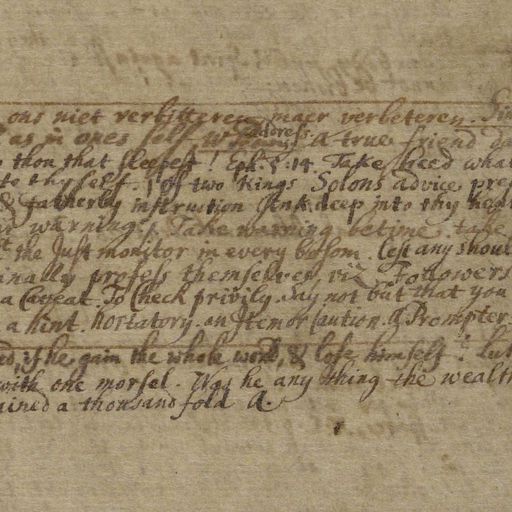 ons niet verbitteren, maer verbeteren.
as in ones self. address. A true friend
thou that sleepest! Eph. 5:14. Take heed what
to thy self. of two Kings Solons advice
& fatherly instruction sink deep into thy
warning. Take warning betime, take
the Just monitor in every bosom. lest any shoul
inally profess themselves Followers
a Caveat. To Check privily. Say not but that you
a hint. hortatory. an Item or Caution. A Prompter
if he gain the whole world, & lose himself? Luk
with one morsel. Was he any thing the wealth
ained a thousand fold A.